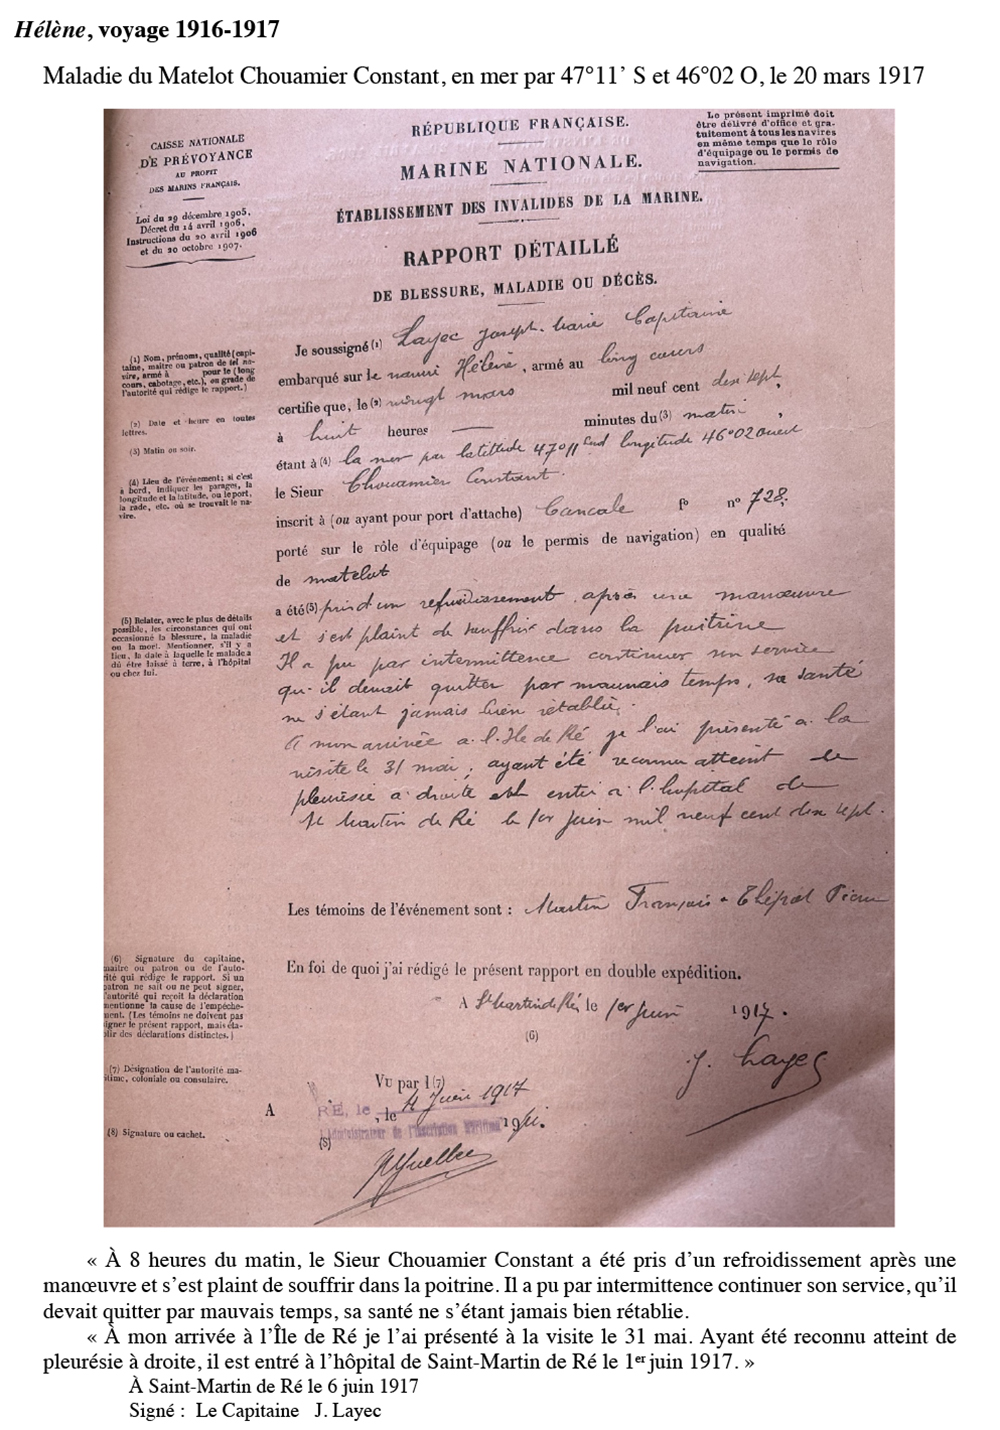 Hélène, voyage 1916-1917
Maladie du Matelot Chouamier Constant, en mer par 47°11’ S et 46°02 O, le 20 mars 1917
CAISSE NATIONALE
DE PRÉVOYANCE
AU PROFIT
DES MARINS FRANÇAIS.
Loi du 29 décembre 1905.
Décret du 14 avril 1906.
Instructions du 20 avril 1906
et du 20 octobre 1907.
RÉPUBLIQUE FRANÇAISE.
MARINE NATIONALE.
ÉTABLISSEMENT DES INVALIDES DE LA MARINE.
RAPPORT DÉTAILLÉ
DE BLESSURE, MALADIE OU DÉCÈS.
Le présent imprimé doit
être délivré d'office et gra-
tuitement à tous les navires
en même temps que le rôle
d'équipage ou le permis de
navigation.
(1) Nom, prénoms, qualité (capi-
taine, maître ou patron de tel na-
vire, armé à pour le (long
cours, cabotage, etc.), ou grade de
l'autorité qui rédige le rapport.)
(2) Date et heure en toutes
lettres.
(3) Matin ou soir.
(4) Lieu de l'événement; si c'est
à bord, indiquer les parages, la
longitude et la latitude, ou le port,
la rade, etc. où se trouvait le na-
vire.
(5) Relater, avec le plus de détails
possible, les circonstances qui ont
occasionné la blessure, la maladie
ou la mort. Mentionner, s'il y a
lieu, la date à laquelle le malade a
dû être laissé à terre, à l'hôpital
ou chez lui.
Je soussigné (1) Layec Joseph-Marie Capitaine
embarqué sur le navire Hélène, armé au long cours
certifie que, le (2) vingt mars mil neuf cent dix sept,
à huit heures — minutes du (3) matin,
étant à (4) la mer par latitude 47°11 Sud longitude 46°02 Ouest
le Sieur Chouamier Constant.
inscrit à (ou ayant pour port d'attache) Cancale fo n° 728;
porté sur le rôle d'équipage (ou le permis de navigation) en qualité
de matelot
a été (5) pris d'un refroidissement après une manœuvre
et s'est plaint de souffrir dans la poitrine
Il a pu par intermittence continuer son service
qu'il devait quitter par mauvais temps, sa santé
ne s'étant jamais bien rétablie.
A mon arrivée a l'Ile de Ré je l'ai présenté a la
visite le 31 mai; ayant été reconnu atteint de
pleurésie a droite est entré a l'hopital de
St Martin de Ré le 1er Juin mil neuf cent dix sept.
Les témoins de l'événement sont : Martin François - Thépot
(6) Signature du capitaine,
maître ou patron ou de l'auto-
rité qui rédige le rapport. Si un
patron ne sait ou ne peut signer,
l'autorité qui reçoit la déclaration
mentionne la cause de l'empêche-
ment. (Les témoins ne doivent pas
signer le présent rapport, mais éta-
blir des déclarations distinctes.)
(7) Désignation de l'autorité ma-
ritime, coloniale ou consulaire.
(8) Signature ou cachet.
En foi de quoi j'ai rédigé le présent rapport en double expédition.
A St Martin de Ré, le 1er Juin 1917.
(6)
J. Layec
Vu par l (7)
4 Juin 1917
A RÉ, le , le 191
l'Administrateur de l'Inscription Maritime
(8)
« À 8 heures du matin, le Sieur Chouamier Constant a été pris d’un refroidissement après une
manœuvre et s’est plaint de souffrir dans la poitrine. Il a pu par intermittence continuer son service, qu’il
devait quitter par mauvais temps, sa santé ne s’étant jamais bien rétablie.
« À mon arrivée à l’Île de Ré je l’ai présenté à la visite le 31 mai. Ayant été reconnu atteint de
pleurésie à droite, il est entré à l’hôpital de Saint-Martin de Ré le 1er juin 1917. »
À Saint-Martin de Ré le 6 juin 1917
Signé : Le Capitaine J. Layec